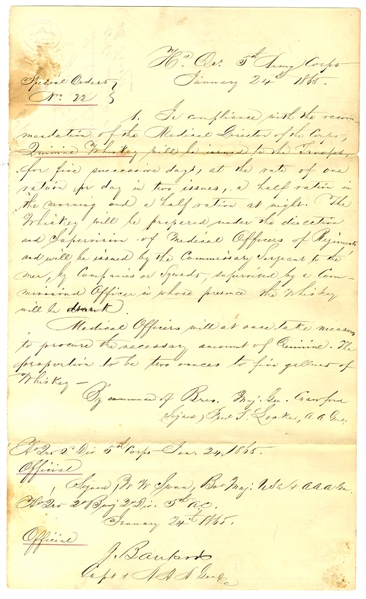 Hd. Qrs. 5th Army Corps
January 24th 1865.
Special Orders
No. 22
1. In compliance with the recom-
mendation of the Medical Director of the Corps,
Quinine Whiskey will be issued to the Troops,
for five successive days, at the rate of one
ration per day in two issues, a half ration in
the morning and a half ration at night. The
Whiskey will be prepared under the direction
and Supervision of Medical Officers of Regiments
and will be issued by the Commissary Sergeant to the
men, by Companies or Squads, supervised by a Com-
missioned Officer in whose presence the Whiskey
will be drank.
Medical Officers will at once take measures
to procure the necessary amount of Quinine. The
proportion to be two ounces to five gallons of
Whiskey—
By command of Brev. Maj. Gen. Crawford
Signed, Fred T. Locke, A.A.G.
Hd Qrs 2d Div 5th Corps Jan. 24, 1865.
Official
Signed, W W Bvt Maj. USA & AAAG
Hd Qrs 2d Brig 2d Div. 5th A.C.
January 24th 1865.
Official
J.
Capt &